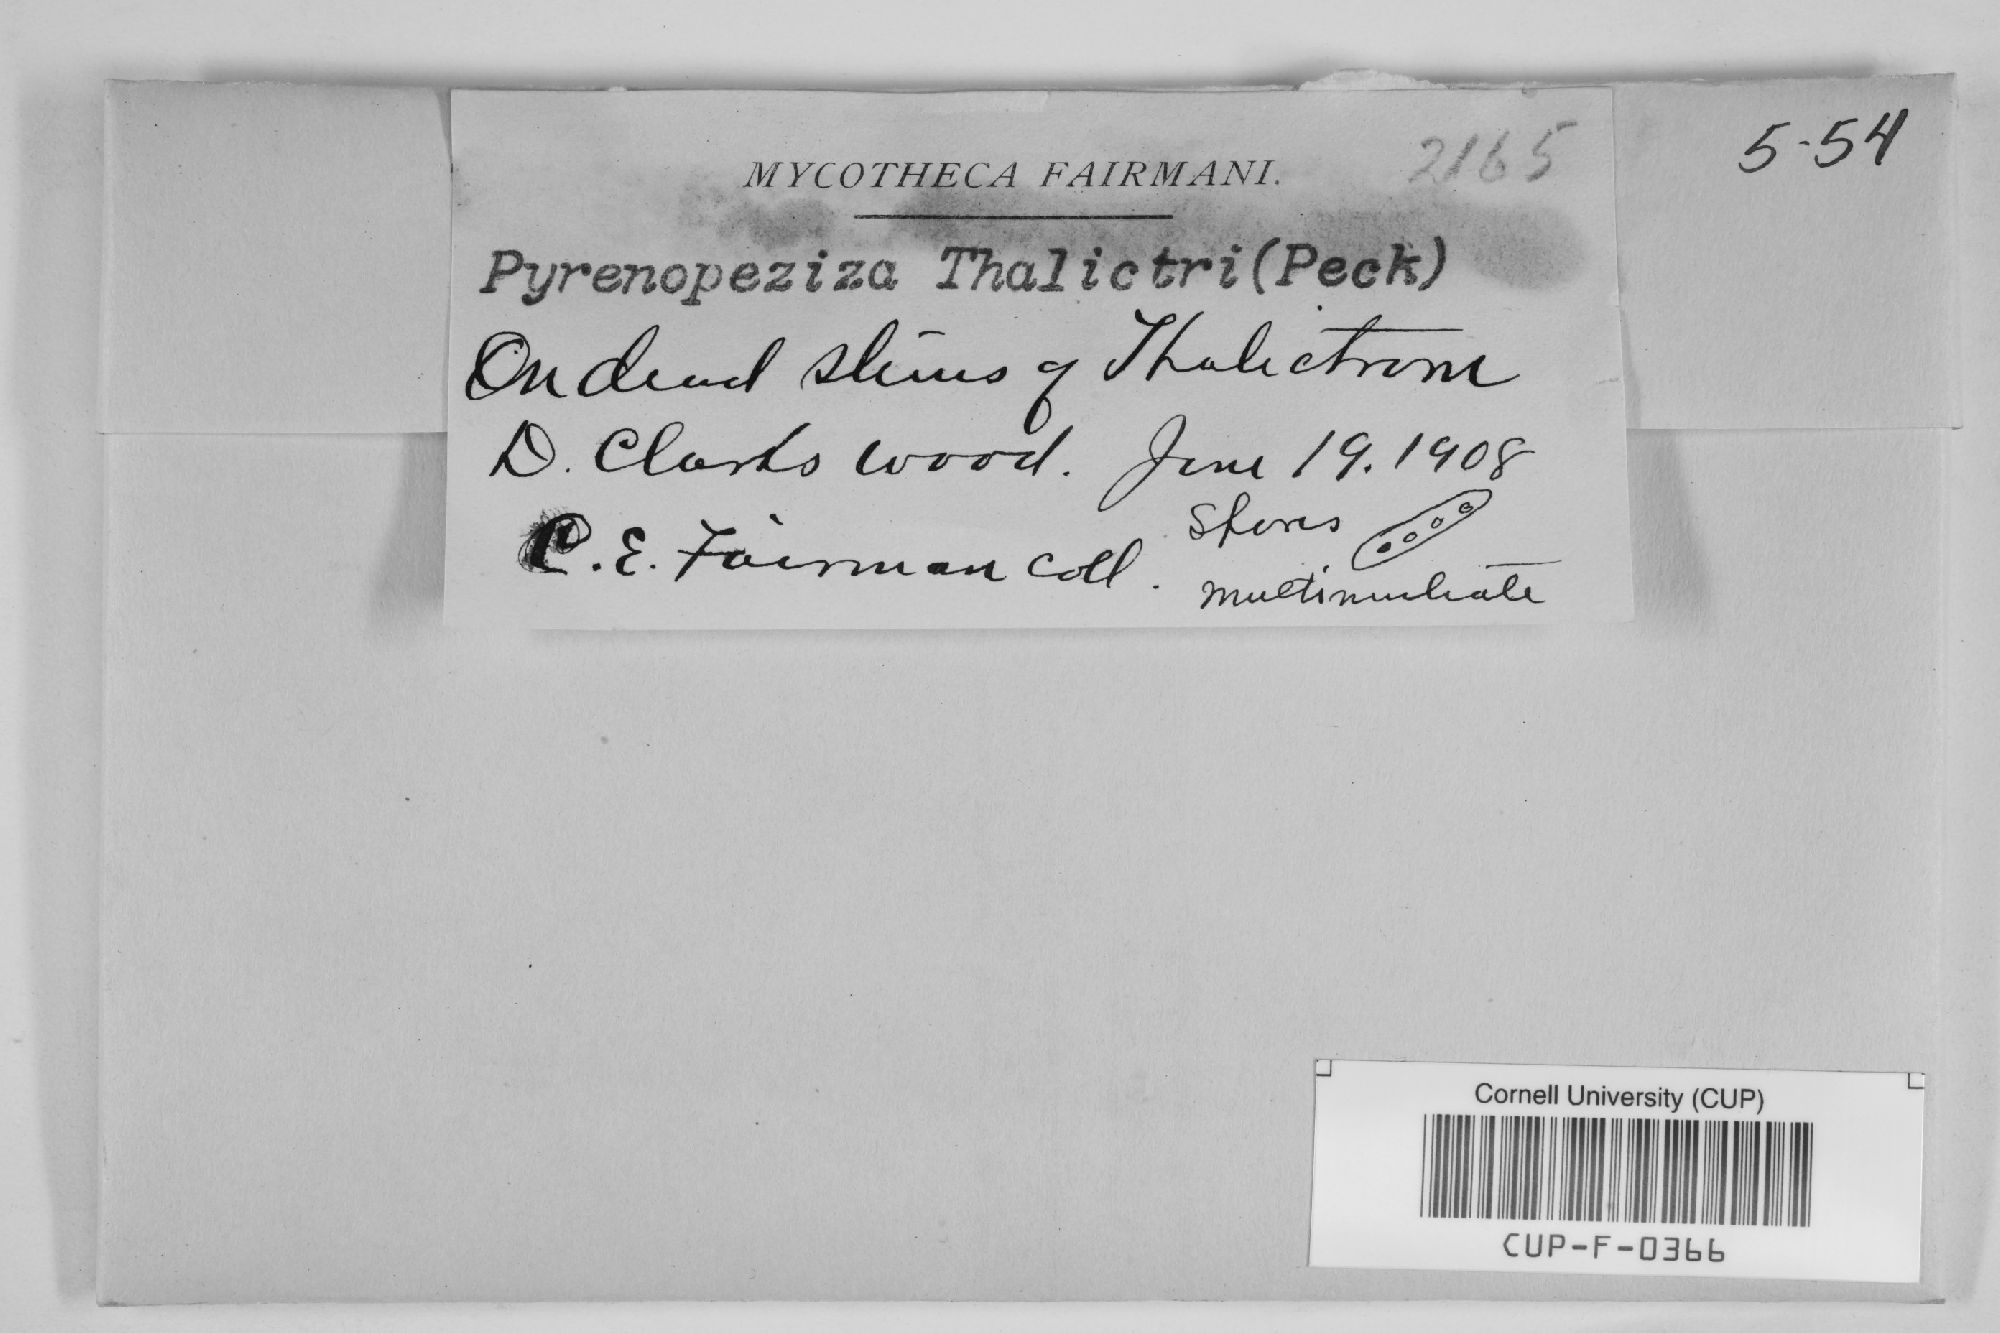 MYCOTHECA FAIRMANI.
2165
5-54
Pyrenopeziza Thalictri (Peck)
On dead stems of Thalictrum
D. Clarks wood. June 19. 1908
C. E. Fairman coll.
Spores
multinucleate
Cornell University (CUP)
CUP-F-0366